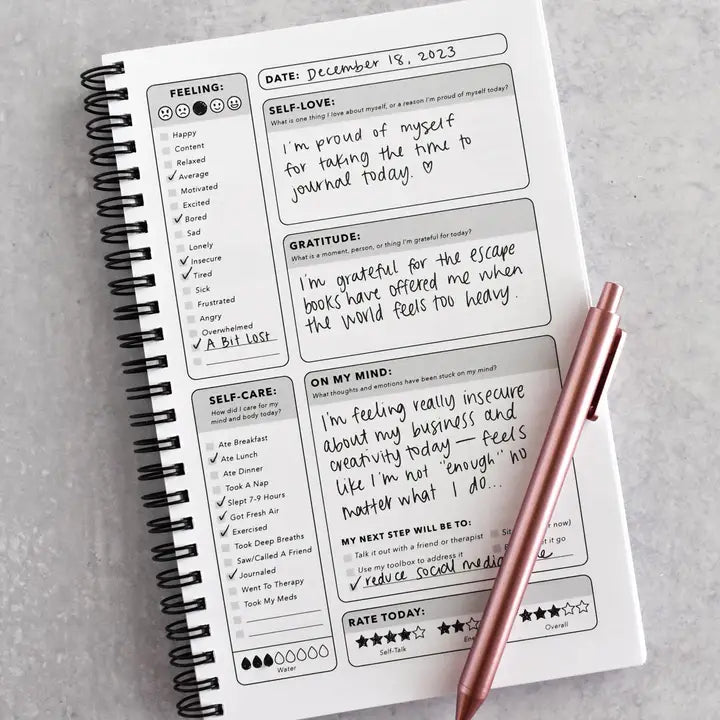 DATE: December 18, 2023
FEELING:
Happy
Content
Relaxed
Average
Motivated
Excited
Bored
Sad
Lonely
Insecure
Tired
Sick
Frustrated
Angry
Overwhelmed
A Bit Lost
SELF-LOVE:
What is one thing I love about myself, or a reason I'm proud of myself today?
I'm proud of myself
for taking the time to
journal today. ♡
GRATITUDE:
What is a moment, person, or thing I'm grateful for today?
I'm grateful for the escape
books have offered me when
the world feels too heavy.
SELF-CARE:
How did I care for my
mind and body today?
Ate Breakfast
Ate Lunch
Ate Dinner
Took A Nap
Slept 7-9 Hours
Got Fresh Air
Exercised
Took Deep Breaths
Saw/Called A Friend
Journaled
Went To Therapy
Took My Meds
Water
ON MY MIND:
What thoughts and emotions have been stuck on my mind?
I'm feeling really insecure
about my business and
creativity today — feels
like I'm not "enough" no
matter what I do...
MY NEXT STEP WILL BE TO:
Talk it out with a friend or therapist
Sit now)
Use my toolbox to address it
it go
reduce social media
RATE TODAY:
Self-Talk
Overall